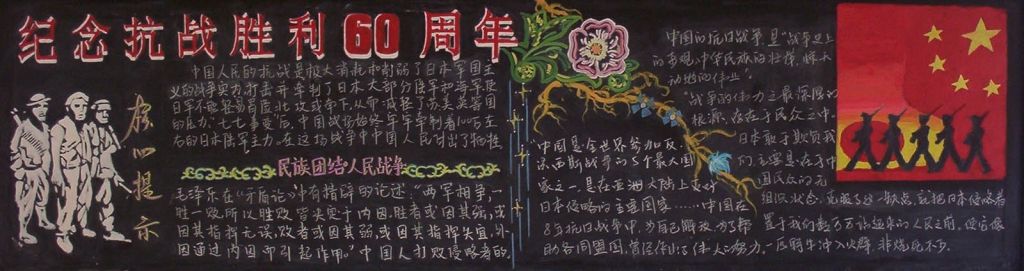 纪念抗战胜利60周年
中国人民的抗战是极大消耗和削弱了日本军国主
义的战争实力,打击并牵制了日本大部分陆军和海军使
的压力.七七事变后,中国战场始终牢牢牵制着100万左
右的日本陆军主力.在这场战争中中国人民付出了牺牲
民族团结人民战争
毛泽东在《矛盾论》中有精辟的论述,"两军相争,一
胜一败,所以胜败,皆决定于内因,胜者或因其强,或
因其指挥无误,败者或因其弱,或因其指挥失宜,外
因通过内因即引起作用。"中国人打败侵略者的
提示
中国的抗日战争是"战争史上
的奇观,中华民族的壮举,惊天
动地的伟业"
"战争的伟力之最深厚的
根源,存在于民众之中
日本敢于欺负我
们,主要是在于中
国民众的无
组织状态.克服了这一缺点,就把日本侵略者
置于我们数万万站起来的人民之前,使它像
一匹野牛冲入火阵
中国是全世界参加反
法西斯战争的5个最大国
家之一,是在亚洲大陆上反对
日本侵略的主要国家……中国在
8年抗日战争中,为自己解放,为了帮
助各同盟国,曾经作了伟大的努力.